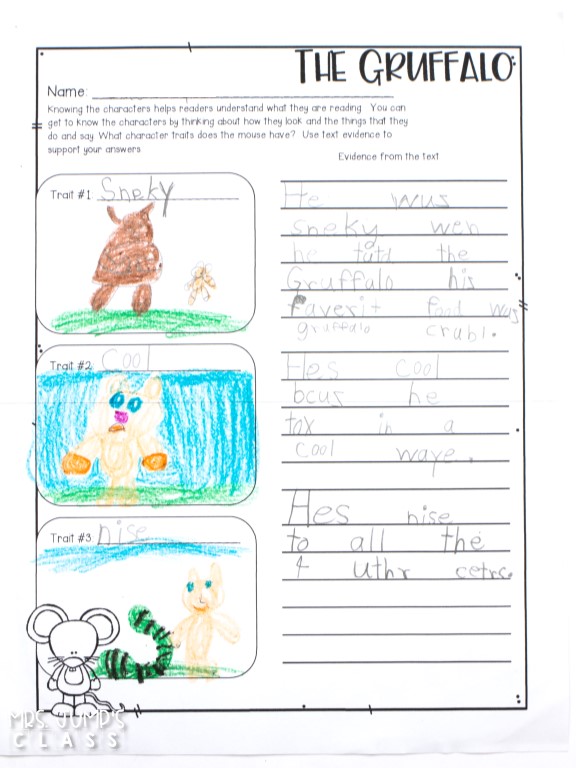 THE GRUFFALO
Name:
Knowing the characters helps readers understand what they are reading. You can
get to know the characters by thinking about how they look and the things that they
do and say. What character traits does the mouse have? Use text evidence to
support your answers.
Evidence from the text
Trait #1 Sneky
He wus
sneky wen
he tatd the
Gruffalo his
faverit food wus
gruffalo crubl.
Trait #2 Cool
Hes cool
bcus he
tox in a
cool waye.
Trait #3 nise
Hes nise
to all the
4 uthr cetrc.
MRS. JUMP'S
CLASS